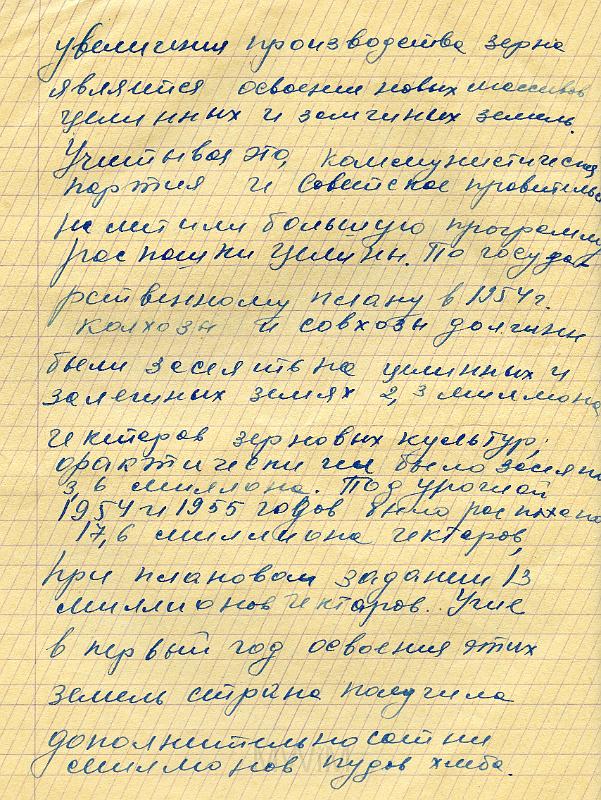 увеличения производства зерна
является освоение новых массивов
целинных и залежных земель.
Учитывая это, коммунистическая
партия и Советское правительс
наметили большую программу
распашки целины. По госуда
рственному плану в 1954 г.
колхозы и совхозы должны
были засеять на целинных и
залежных землях 2,3 миллиона
гектаров зерновых культур;
фактически им было засеяно
3,6 миллиона. Под урожай
1954 и 1955 годов было распахано
17,6 миллиона гектаров,
при плановом задании 13
миллионов гектаров. Уже
в первый год освоения этих
земель страна получила
дополнительно сотни
миллионов пудов хлеба.